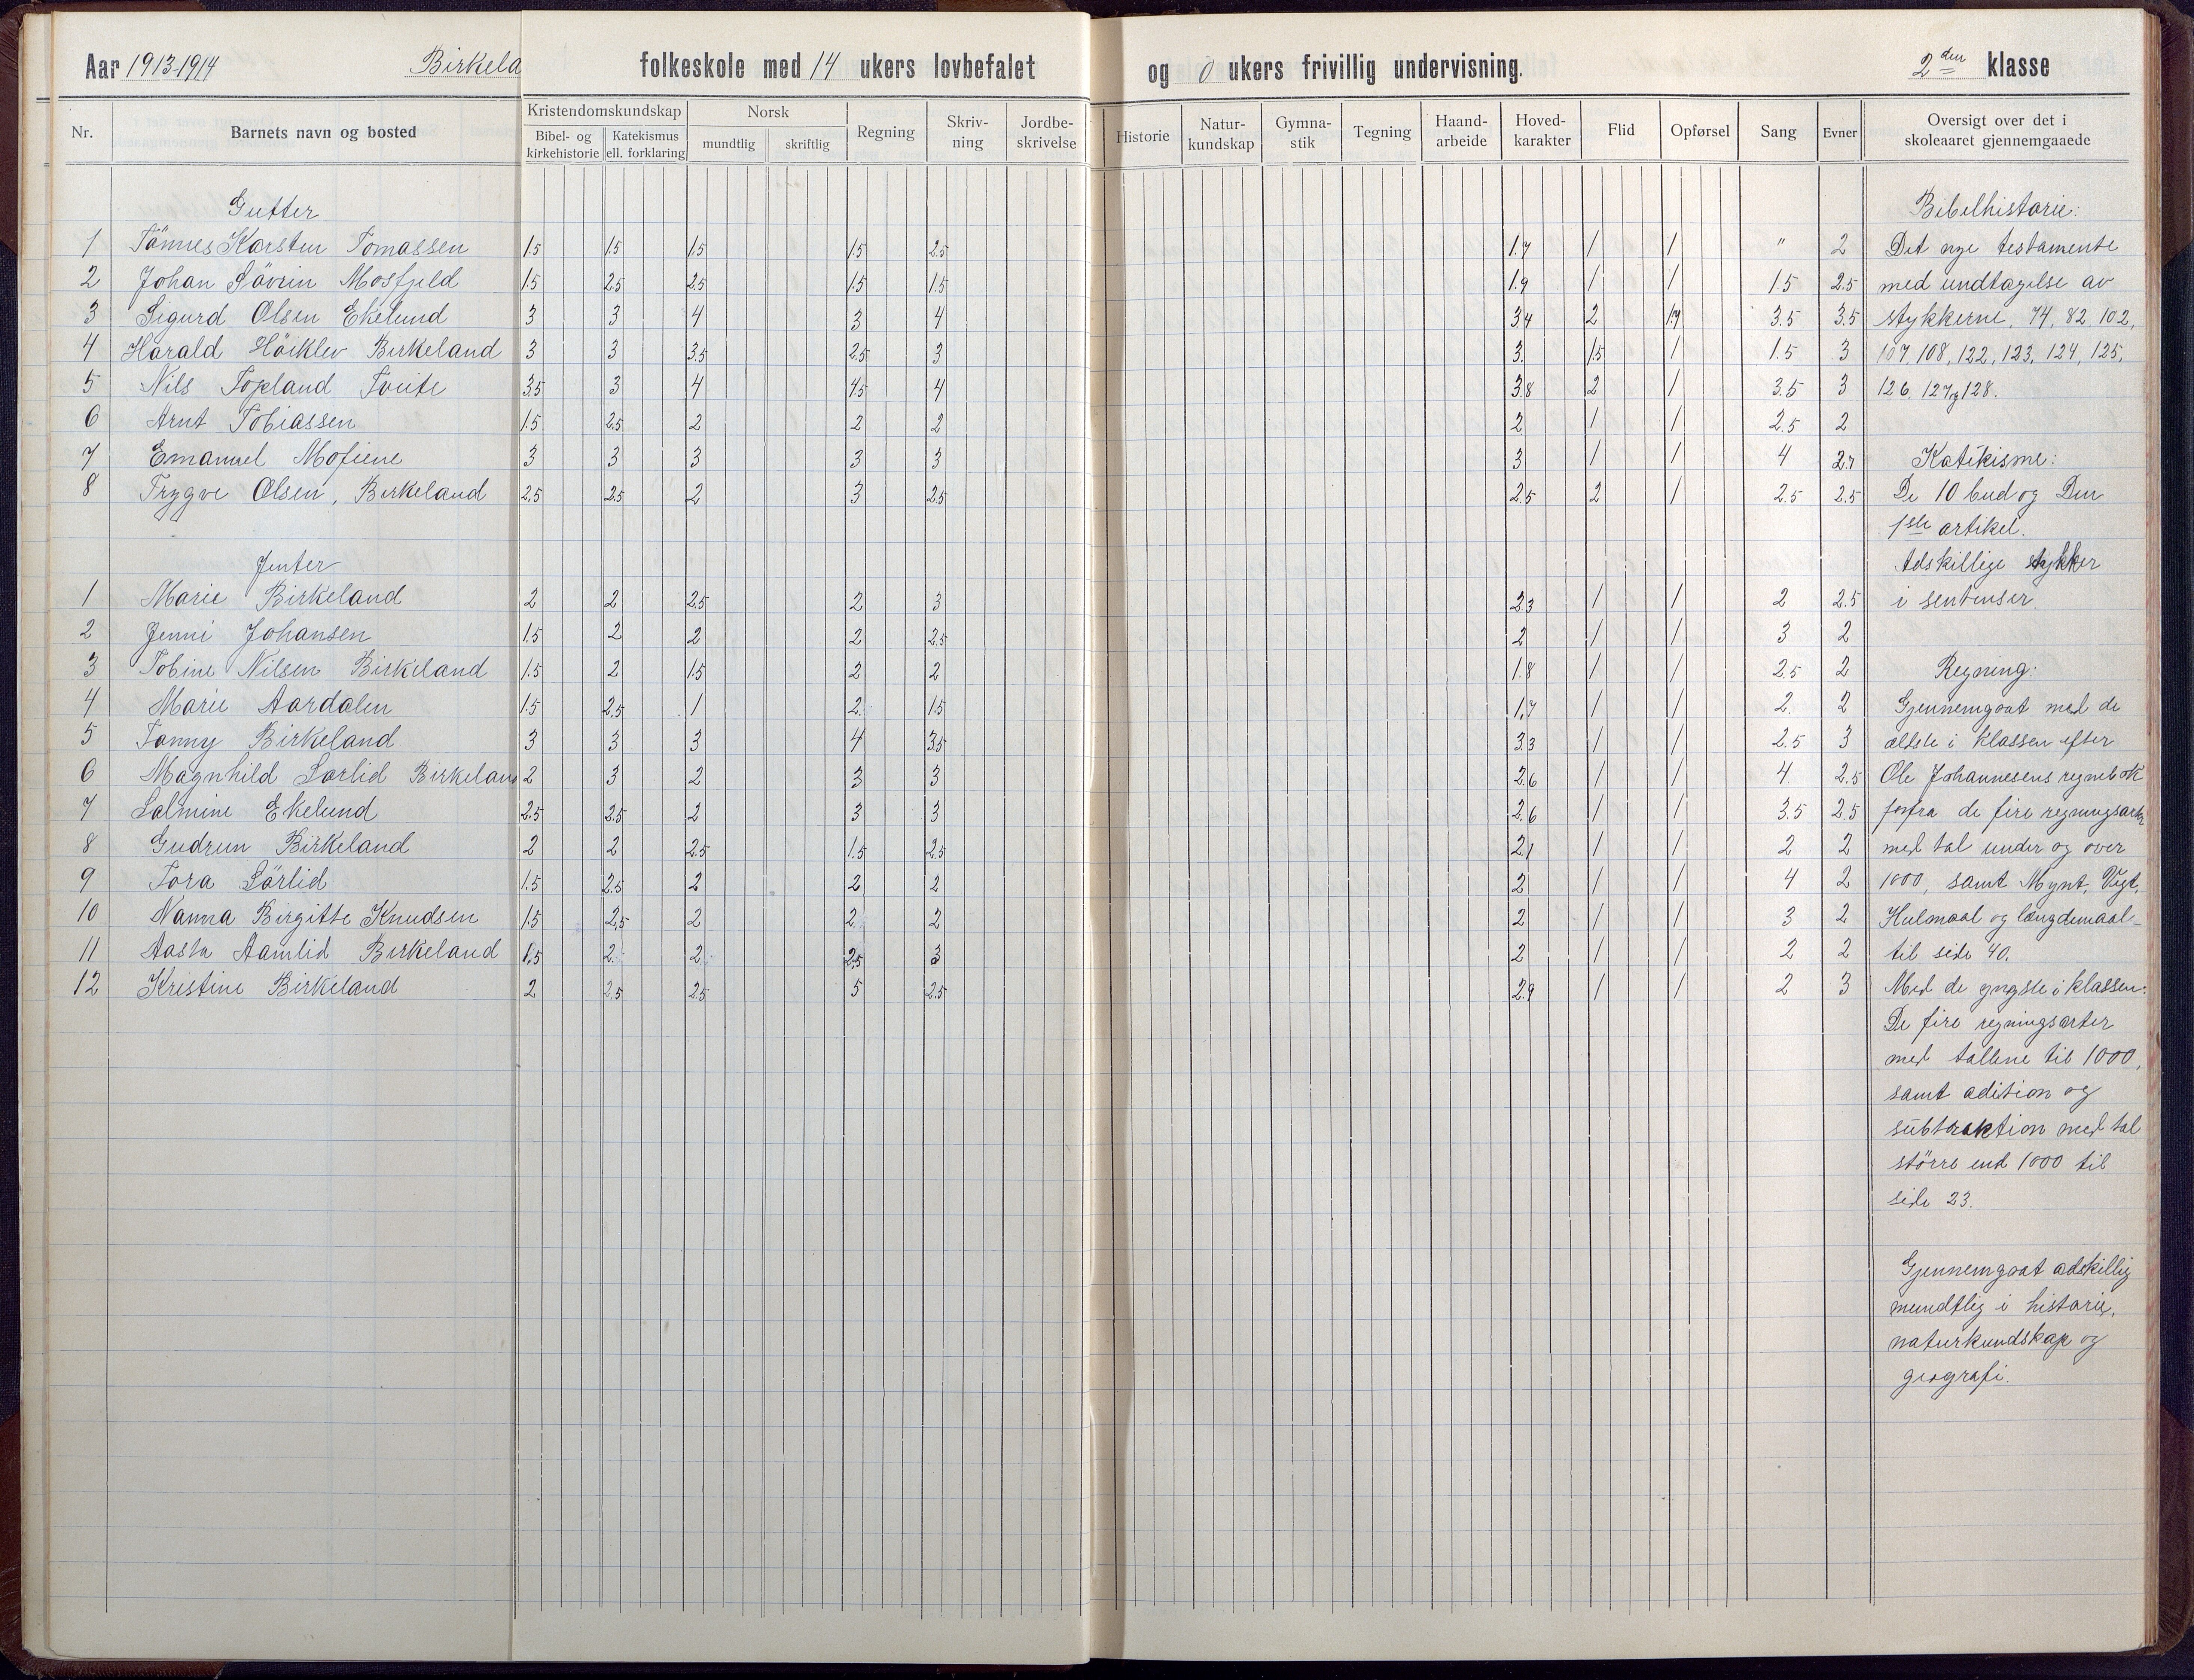 Aar 1913-1914 Birkela folkeskole med 14 ukers lovbefalet og 0 ukers frivillig undervisning. 2den klasse
Nr. Barnets navn og bosted Kristendomskundskap Bibel- og kirkehistorie Katekismus ell. forklaring Norsk mundtlig skriftlig Regning Skriv-ning Jordbe-skrivelse Historie Natur-kundskap Gymna-stik Tegning Haand-arbeide Hoved-karakter Flid Opførsel Sang Evner Oversigt over det i skoleaaret gjennemgaaede
Gutter
1 Tönnes Karsten Tomassen 1.5 1.5 1.5 1.5 2.5 1.7 1 1 " 2
2 Johan Sövrin Mosfjeld 1.5 2.5 2.5 1.5 1.5 1.9 1 1 1.5 2.5
3 Sigurd Olsen Ekelund 3 3 4 3 4 3.4 2 1.7 3.5 3.5
4 Harald Höiklev Birkeland 3 3 3.5 2.5 3 3. 1.5 1 1.5 3
5 Nils Topland Tveite 3.5 3 4 4.5 4 3.8 2 1 3.5 3
6 Arnt Tobiassen 1.5 2.5 2 2 2 2 1 1 2.5 2
7 Emanuel Mofiene 3 3 3 3 3 3 1 1 4 2.7
8 Trygve Olsen, Birkeland 2.5 2.5 2 3 2.5 2.5 2 1 2.5 2.5
Jenter
1 Marie Birkeland 2 2 2.5 2 3 2.3 1 1 2 2.5
2 Jenni Johansen 1.5 2 2 2 2.5 2 1 1 3 2
3 Tobine Nilsen Birkeland 1.5 2 1.5 2 2 1.8 1 1 2.5 2
4 Marie Aardalen 1.5 2.5 1 2. 1.5 1.7 1 1 2. 2
5 Tanny Birkeland 3 3 3 4 3.5 3.3 1 1 2.5 3
6 Magnhild Sarlid Birkeland 2 3 2 3 3 2.6 1 1 4 2.5
7 Salmine Ekelund 2.5 2.5 2 3 3 2.6 1 1 3.5 2.5
8 Gudrun Birkeland 2 2 2.5 1.5 2.5 2.1 1 1 2 2
9 Tora Sörlid 1.5 2.5 2 2 2 2 1 1 4 2
10 Nanna Birgitte Knudsen 1.5 2,5 2 2. 2 2 1 1 3 2
11 Aasta Aamlid Birkeland 1.5 2. 2. 2,5 3 2 1 1 2 2
12 Kristine Birkeland 2 2.5 2.5 5 2.5 2.9 1 1 2 3
Bibelhistorie:
Det nye testamente
med undtagelse av
stykkerne, 74, 82 102,
107, 108, 122, 123, 124, 125,
126. 127 og 128.
Katekisme:
De 10 bud og Den
1ste artikel.
Adskillige stykker
i sentenser.
Regning:
Gjennemgaat med de
ældste i klassen efter
Ole Johannesens regnebok
forfra de fire regningsarter
med tal under og over
1000, samt Mynt, Vegt,
Hulmaal og længdemaal-
til side 40.
Med de yngste i klassen:
De fire regningsarter
med tallene til 1000,
samt adition og
subtraktion med tal
större end 1000 til
side 23.
Gjennemgaat adskillig
mundtlig i historie,
naturkundskap og
geografi.